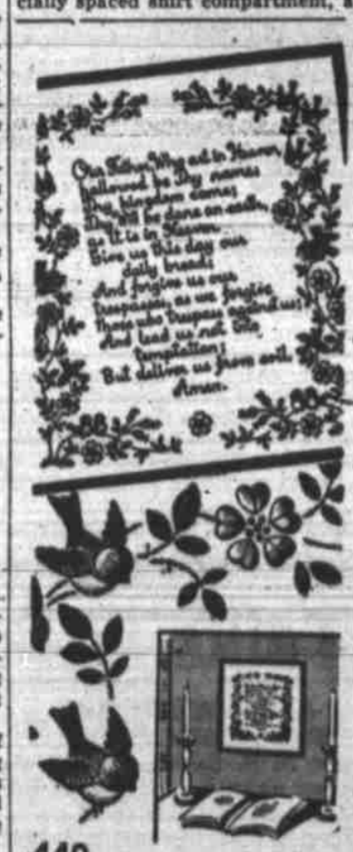 cially spaced shirt compartment, a
Our Father Who art in Heaven,
hallowed be Thy name;
Thy kingdom come;
Thy Will be done on earth,
as it is in Heaven.
Give us this day our
daily bread;
And forgive us our
trespasses, as we forgive
those who trespass against us;
And lead us not into
temptation;
But deliver us from evil.
Amen.
449